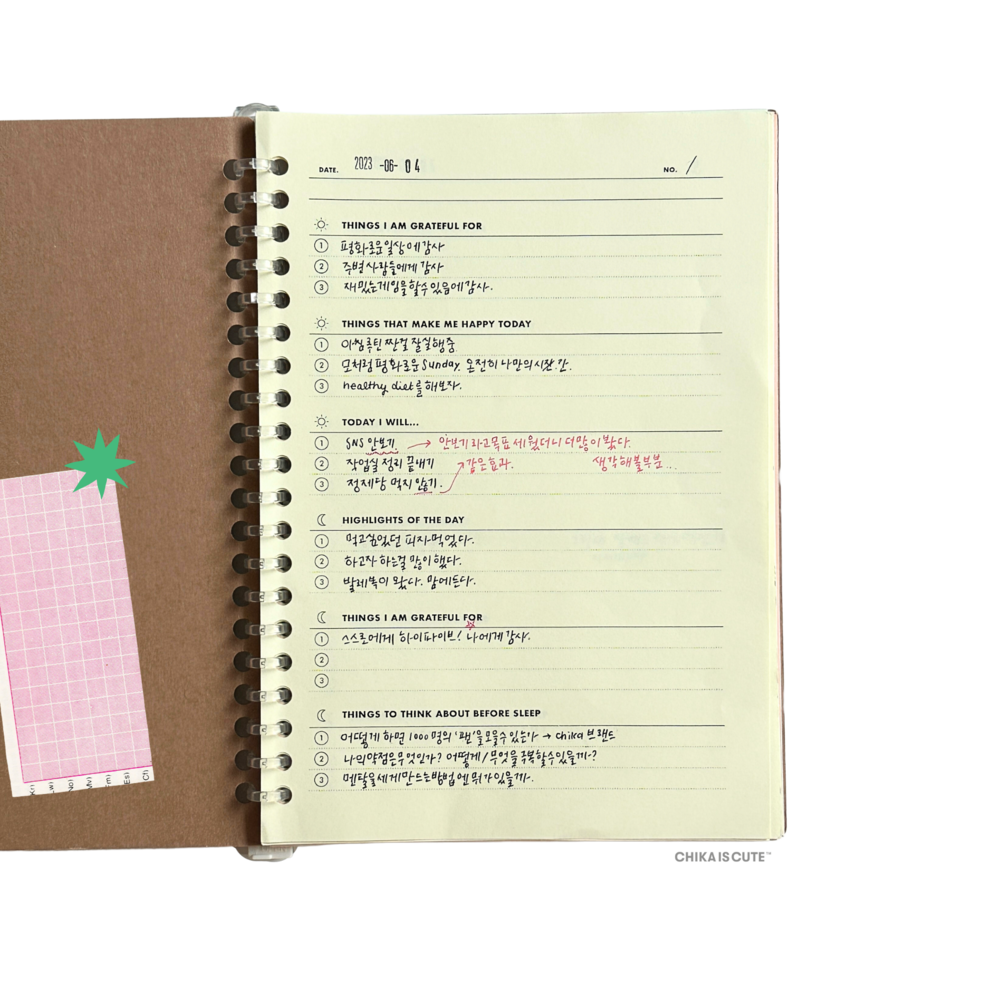 DATE. 2023 -06- 04 NO. /
THINGS I AM GRATEFUL FOR
1 평화로운 일상에 감사
2 주변 사람들에게 감사
3 재밌는 게임을 할 수 있음에 감사.
THINGS THAT MAKE ME HAPPY TODAY
1 아침 루틴 짠걸 잘 실행중
2 모처럼 평화로운 Sunday. 온전히 나만의 시간.
3 healthy diet를 해보자.
TODAY I WILL...
1 SNS 안보기 → 안보기라고 목표 세웠더니 더 많이 봤다.
2 작업실 정리 끝내기 같은 효과. 생각해볼부분...
3 정제당 먹지 않기.
HIGHLIGHTS OF THE DAY
1 먹고싶었던 피자 먹었다.
2 하고자 하는걸 많이 했다.
3 발레복이 왔다. 맘에든다.
THINGS I AM GRATEFUL FOR
1 스스로에게 하이파이브! 나에게 감사.
2
3
THINGS TO THINK ABOUT BEFORE SLEEP
1 어떻게 하면 1000명의 '팬'을 모을 수 있는가 → chika 브랜드
2 나의 약점은 무엇인가? 어떻게/무엇을 극복할 수 있을까?
3 멘탈을 세게 만드는 방법엔 뭐가 있을까.
Kr)
Lw)
No)
Mv)
Fm)
Es)
Cf)
CHIKA IS CUTE™